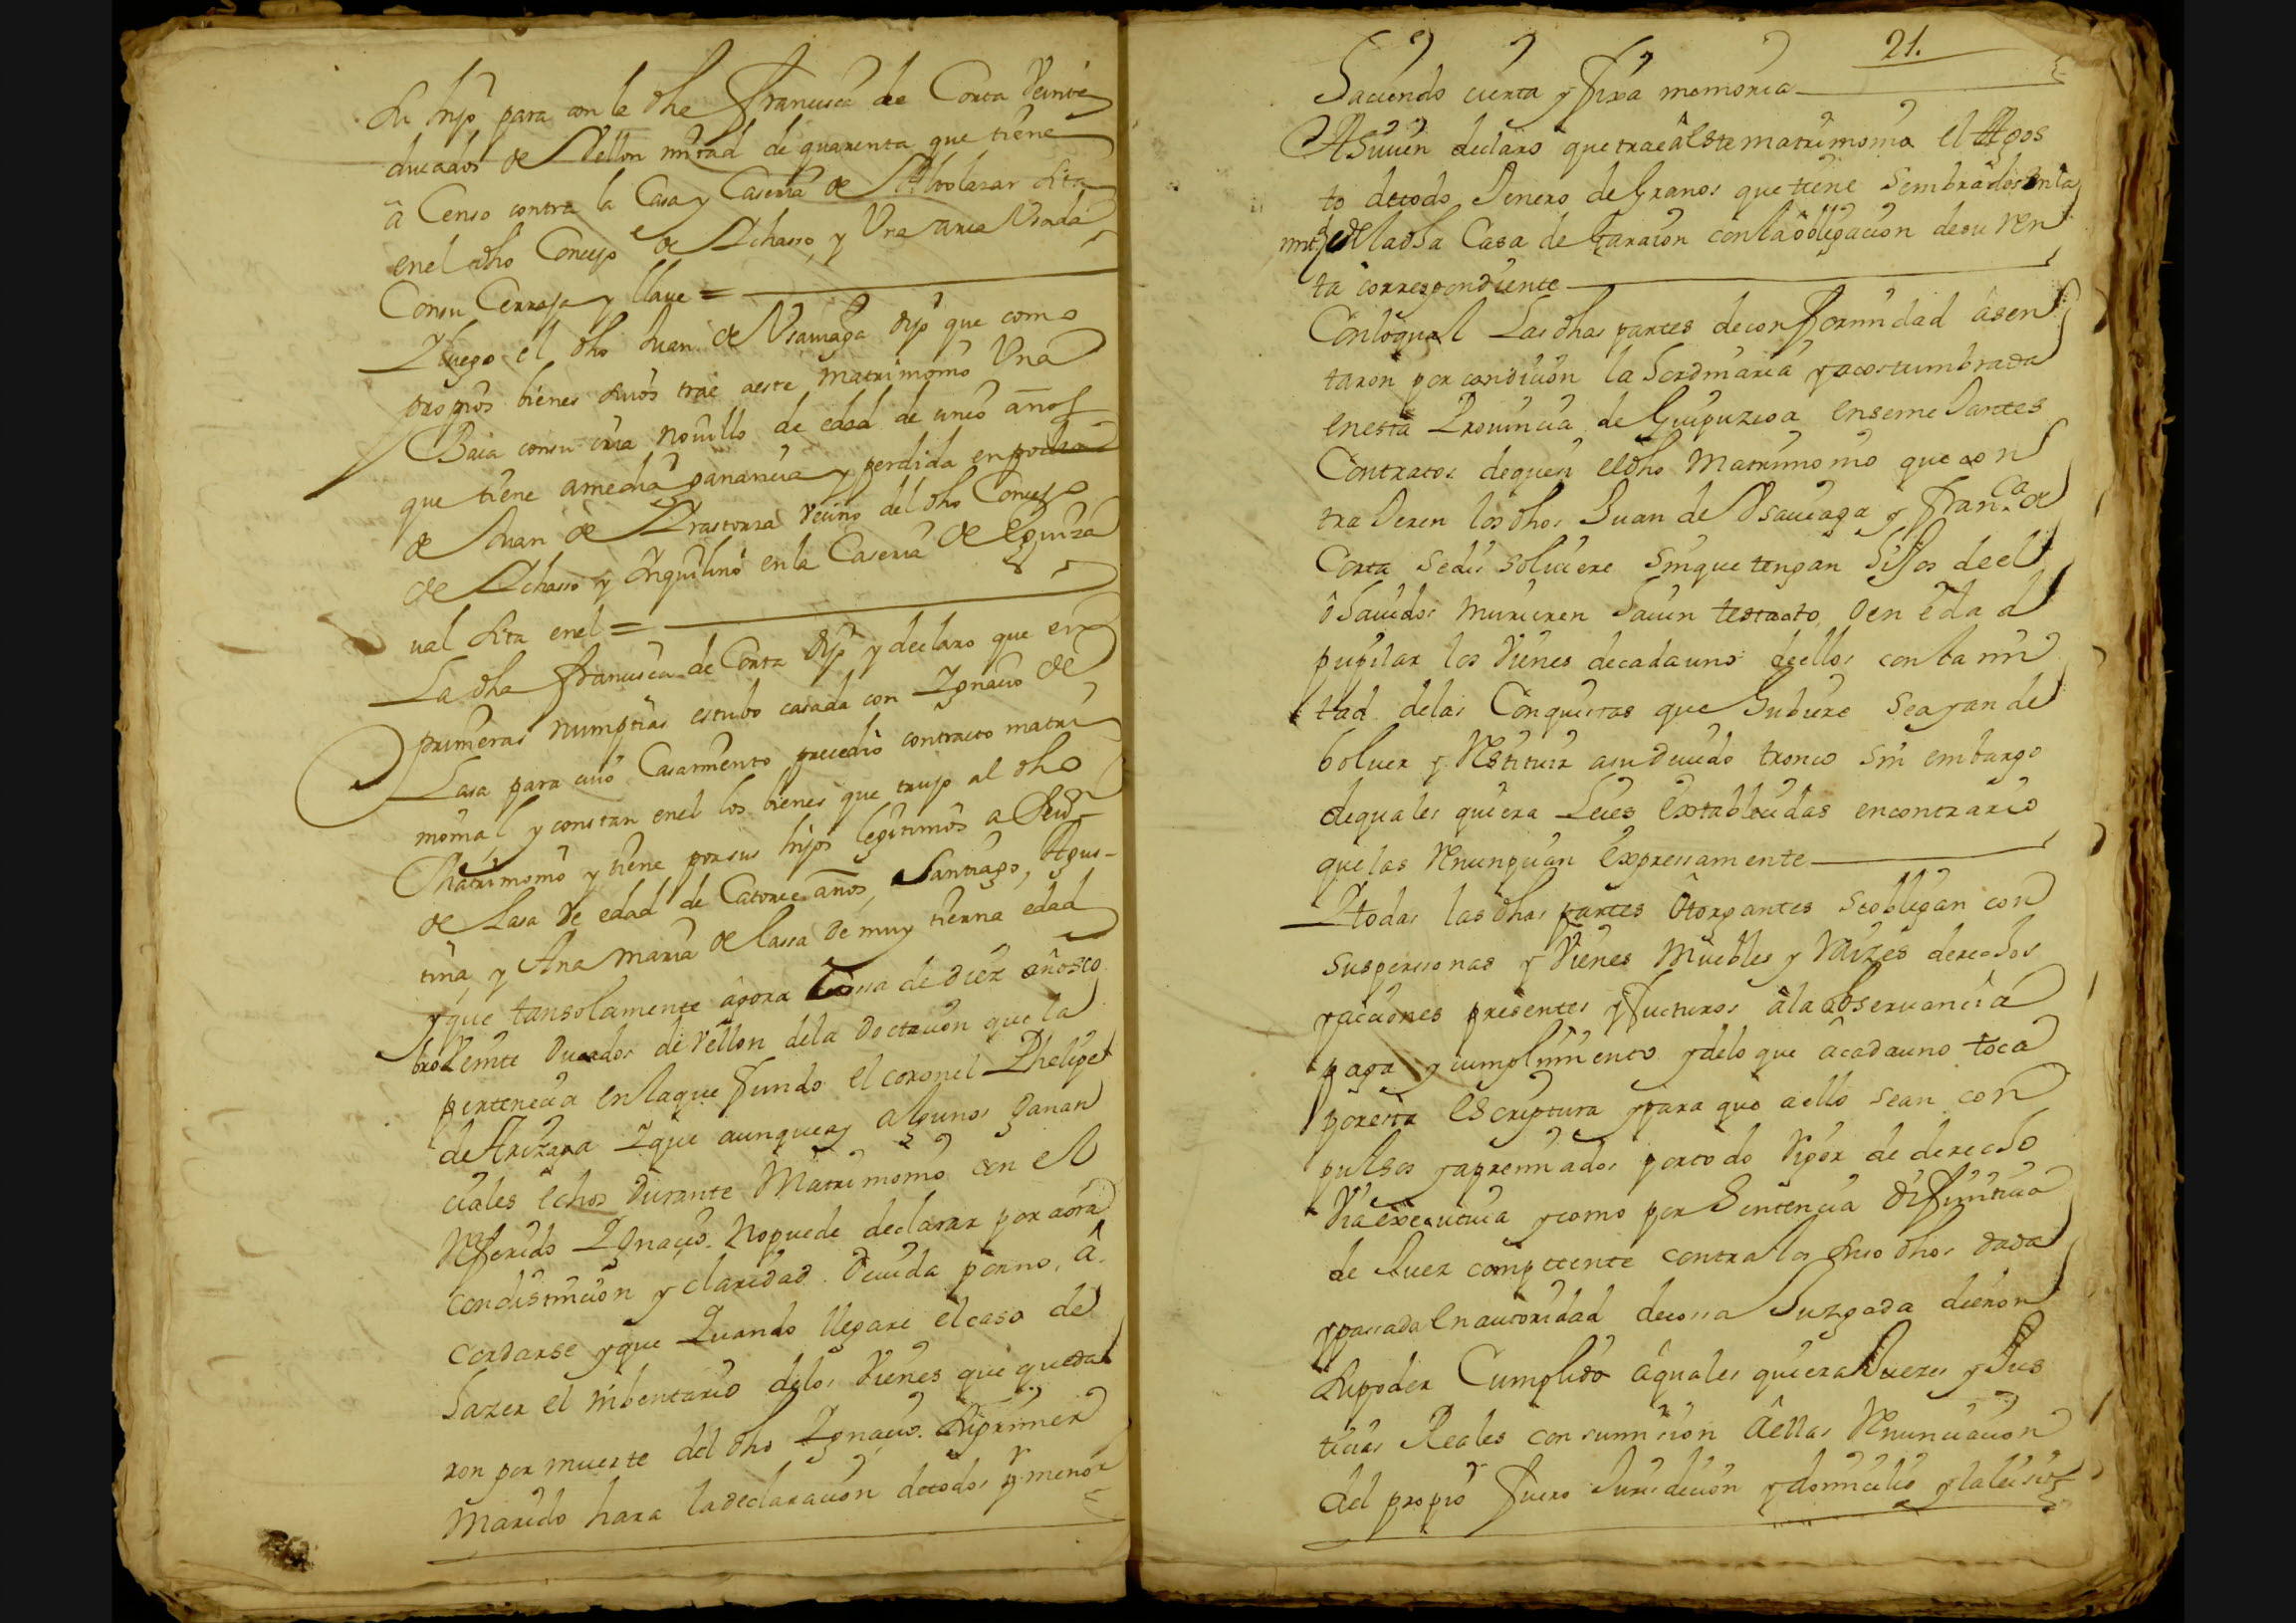 Su hijo para con la dha Francisca de Corta Veinte
ducados de Vellon mitad de quarenta que tiene
â Censo contra la Casa y Caseria de sita
en el dho Concejo de Achasso, y Vna arca Vsada
Con su Cerraja y llaue =
Y luego el dho Juan de Vsauiaga dijo que como
propios bienes suios trae a este matrimonio Vna
Baca con su cria nouillo de edad de años
que tiene a media ganancia y perdida en poder
de Juan de Arrastorza Vecino del dho Concejo
de Achasso y Ynquilino en la Caseria de Eguiza
ual sita en el =
La dha Francisca de Corta dijo y declaro que en
primeras numptias estubo casada con Ygnacio de
Lasa para cuio Casamiento precedio contracto matri
monial y constan en el los bienes que trujo al dho
Matrimonio y tiene por sus hijos legitimos a
de Lasa de edad de Catorce años, Santiago, Agus-
tina y Ana Maria de Lassa de muy tierna edad
y que tansolamente âgora cossa de diez años co
bro Veinte Ducados de Vellon dela Doctacion que la
pertenecia en la que fundo el coronel Phelipe
de Arizaga Y que aunque ay algunos Ganan
ciales echos Durante Matrimonio con el
Referido Ygnacio. No puede declarar por aora
con distincion y claridad Deuida por no, â.
cordarse y que Quando llegare el caso de
hazer el inbentario delos Vienes que queda
ron por muerte del dho Ygnacio. Su primer
Marido hara la declaracion de todos y menor
21.
haciendo cierta y fixa memoria
Assiuien declaro que trae â este matrimonio el Agos
to de todo Genero de Granos que tiene Sembrados en la
mitad de la dha Casa de Garaion con la obligacion de su ren
ta correspondiente
Con lo qual Las dhas partes de conformidad âsen
taron por condicion la hordinaria y acostumbrada
en esta Prouincia de Guipuzcoa en semejantes
Contratos de que si el dho Matrimonio que con
tra Jeren los dhos Juan de Vsauiaga y Fran.ca de
Corta se dis soluiere sin que tengan hijos de el
ô hauidos murieren hauin testacto, o en edad
pupilar los Vienes de cada uno deellos con la mi
tad delas Conquistas que hubiere se ayan de
boluer y Restituir a su deuido tronco sin embargo
de quales quiera Leies Extablecidas en contrario
que las Renunçian Expressamente
Y todas las dhas partes Otorgantes se obligan con
sus perssonas y Vienes Muebles y Raizes derechos
y aciones presentes y fucturos â la observancia
paga y cumplimiento y delo que â cada uno toca
por esta Escriptura y para que a ello sean con
pulsos y apremiados por todo Rigor de derecho
Via executiua y como por Sentencia Difinitiua
de Juez competente contra los suso dhos dada
y passada en autoridad de cossa Juzgada dieron
Su poder Cumplido â quales quiera Juezes y Jus
ticias Reales con sumision âellas Renunciacion
del propio fuero Jurisdicion y domicilio y la lei sit